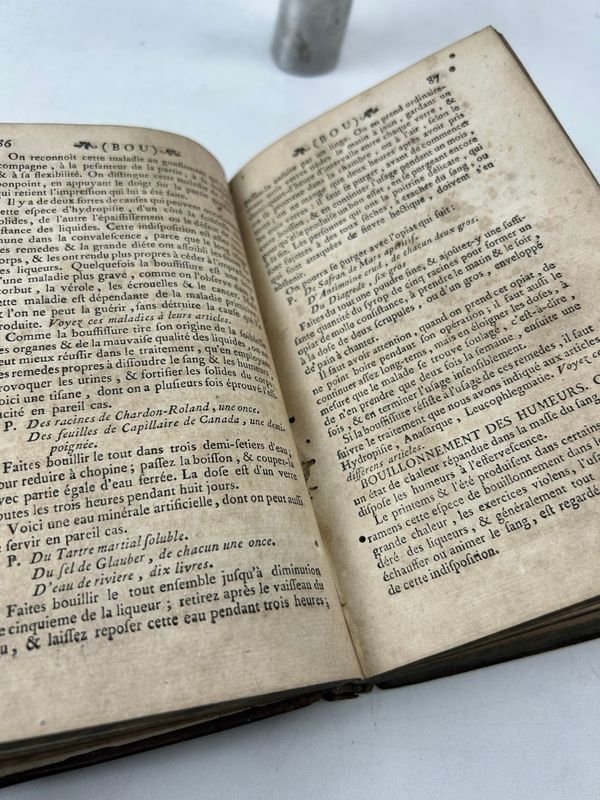 86
(BOU)
On reconnoît cette maladie au gonflement qui
compagne, à la pesanteur de la partie, à la
& à la flexibilité. On distingue cette maladie de
bonpoint, en appuyant le doigt sur la
qui retient l'impression qui lui a été faite.
Il y a de deux fortes de causes qui peuvent
cette espece d'hydropisie, d'un côté la
solides, de l'autre l'épaississement ou le défaut de
stance des liquides. Cette indisposition est
mune dans la convalescence, parce que le
es remedes & la grande diéte ont affoibli
corps, & les ont rendu plus propres à céder à
des liqueurs. Quelquefois la bouffissure est
une maladie plus grave, comme on l'observe
corbut, la vérole, les écrouelles & le
ette maladie est dépendante de la maladie
l'on ne peut la guérir, sans détruire la cause
roduite. Voyez ces maladies à leurs articles.
Comme la bouffissure tire son origine de la foiblesse
es organes & de la mauvaise qualité des liquides, on ne
eut mieux réussir dans le traitement, qu'en
es remedes propres à dissoudre le sang & les humeurs,
rovoquer les urines, & fortifier les solides du corps.
oici une tisane, dont on a plusieurs fois éprouvé
cacité en pareil cas.
P. Des racines de Chardon-Roland, une once.
Des feuilles de Capillaire de Canada, une demi-
poignée.
Faites bouillir le tout dans trois demi-setiers d'eau;
our reduire à chopine; passez la boisson, & coupez-la
vec partie égale d'eau ferrée. La dose est d'un verre
outes les trois heures pendant huit jours.
Voici une eau minérale artificielle, dont on peut aussi
e servir en pareil cas.
P. Du Tartre martial soluble.
Du sel de Glauber, de chacun une once.
D'eau de riviere, dix livres.
Faites bouillir le tout ensemble jusqu'à diminution
e cinquieme de la liqueur; retirez après le vaisseau du
u, & laissez reposer cette eau pendant trois heures;
87
(BOU)
ensuite par un linge. On en prend ordinaire-
matin à jeun, gardant un
d'intervalle entre chaque verre, &
dans la chambre, ou à l'air selon le
il faut se purger, après avoir pris
heures pendant un mois,
& avant de commencer
Qu'elle produise un bon effet, en purgeant encore
Les personnes qui ont la poitrine délicate, qui
sont attaqués d'une toux séche, & cracher du sang, ou
& fievre hectique, doivent s'en
On peut se purger avec l'opiat qui suit.
P. De Saffran de Mars apéritif,
D'Antimoine crud, de chacun deux gros.
Du Diagrede, six gros.
Faites du tout une poudre fine, & ajoûtez-y une suffi-
sante quantité du syrop de cinq racines pour former un
opiat de molle consistance, à prendre le matin & le soir,
à la dose de deux scrupules, ou d'un gros, enveloppé
de pain à chanter.
Il faut avoir attention, quand on prend cet opiat, de
ne point boire pendant son opération; il faut aussi, le
continuer assez long-tems, mais en éloigner les doses, à
mesure que le malade se trouve soulagé, c'est-à-dire,
de n'en prendre que deux fois la semaine, ensuite une
fois, & en terminer l'usage insensiblement.
Si la bouffissure résiste à l'usage de ces remedes, il faut
suivre le traitement que nous avons indiqué aux articles
Hydropisie, Anasarque, Leucophlegmatie. Voyez ces
différens articles.
BOUILLONNEMENT DES HUMEURS. C
un état de chaleur répandue dans la masse du sang
dispose les humeurs à l'effervescence.
Le printems & l'été produisent dans certains
ramens cette espece de bouillonnement dans le
grande chaleur, les exercices violens, l'usa
déré des liqueurs, & généralement tout
échauffer ou animer le sang, est regardé
de cette indisposition.